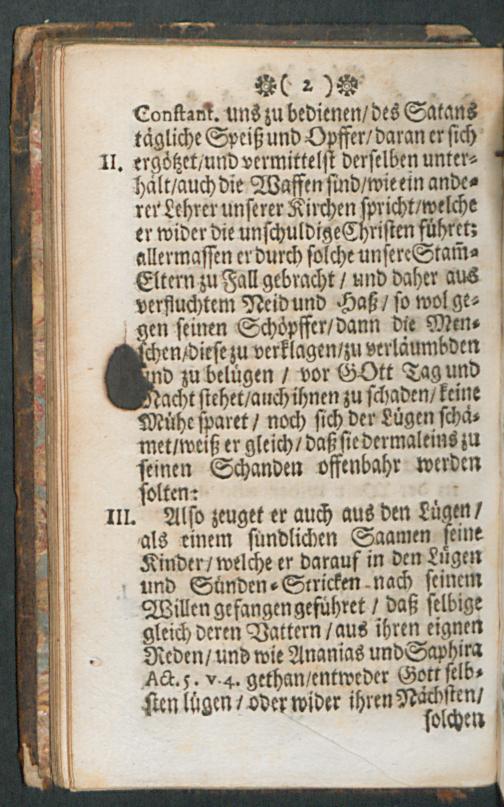 ❁( 2 )❁
Constant. uns zu bedienen/ des Satans
tägliche Speiß und Opffer/ daran er sich
II. ergötzet/ und vermittelst derselben unter-
hält/ auch die Waffen sind/ wie ein ande-
rer Lehrer unserer Kirchen spricht/ welche
er wider die unschuldige Christen führet;
allermassen er durch solche unsere Stam̃-
Eltern zu Fall gebracht / und daher aus
verfluchtem Neid und Haß / so wol ge-
gen seinen Schöpffer/ dann die Men-
schen/ diese zu verklagen/ zu verläumbden
und zu belügen / vor GOtt Tag und
Nacht stehet/ auch ihnen zu schaden/ keine
Mühe sparet / noch sich der Lügen schä-
met/ weiß er gleich / daß sie dermaleins zu
seinen Schanden offenbahr werden
solten:
III. Also zeuget er auch aus den Lügen /
als einem sündlichen Saamen seine
Kinder/ welche er darauf in den Lügen
und Sünden-Stricken nach seinem
Willen gefangen geführet / daß selbige
gleich deren Vattern / aus ihren eignen
Reden/ und wie Ananias und Saphira
Act. 5. v. 4. gethan/ entweder Gott selb-
sten lügen / oder wider ihren Nächsten/
solchen